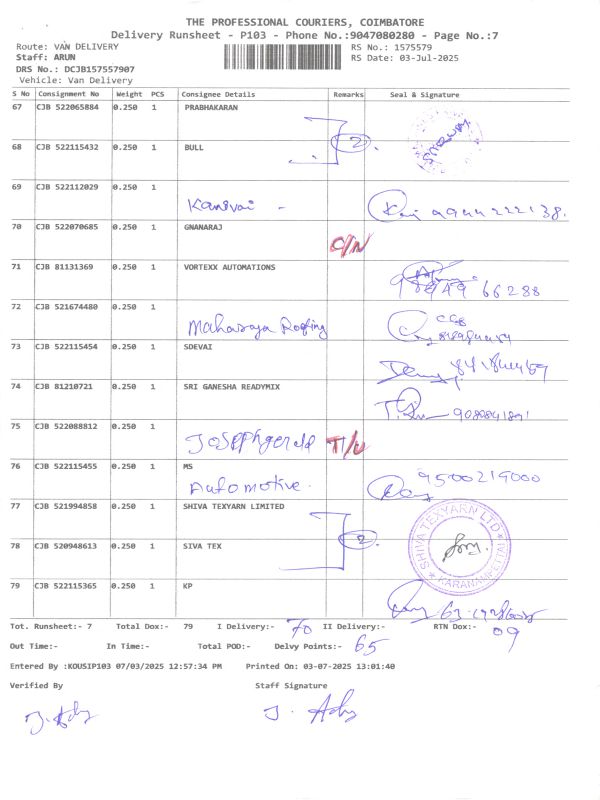 THE PROFESSIONAL COURIERS, COIMBATORE
Delivery Runsheet - P103 - Phone No.:9047080280 - Page No.:7
Route: VAN DELIVERY
RS No.: 1575579
Staff: ARUN
RS Date: 03-Jul-2025
DRS No.: DCJB157557907
Vehicle: Van Delivery
S No Consignment No Weight PCS Consignee Details Remarks Seal & Signature
67 CJB 522065884 0.250 1 PRABHAKARAN
2
68 CJB 522115432 0.250 1 BULL
69 CJB 522112029 0.250 1
70 CJB 522070685 0.250 1 GNANARAJ
C/N
71 CJB 81131369 0.250 1 VORTEXX AUTOMATIONS
72 CJB 521674480 0.250 1
Maharaja Roofing
73 CJB 522115454 0.250 1 SDEVAI
74 CJB 81210721 0.250 1 SRI GANESHA READYMIX
75 CJB 522088812 0.250 1
Josephgerald T/U
76 CJB 522115455 0.250 1 MS
Automotive. 9500219000
77 CJB 521994858 0.250 1 SHIVA TEXYARN LIMITED
2
SHIVA TEXYARN LTD
KARANAMPETTAI
78 CJB 520948613 0.250 1 SIVA TEX
79 CJB 522115365 0.250 1 KP
Tot. Runsheet:- 7 Total Dox:- 79 I Delivery:- 70 II Delivery:- RTN Dox:- 09
Out Time:- In Time:- Total POD:- Delvy Points:- 65
Entered By :KOUSIP103 07/03/2025 12:57:34 PM Printed On: 03-07-2025 13:01:40
Verified By Staff Signature